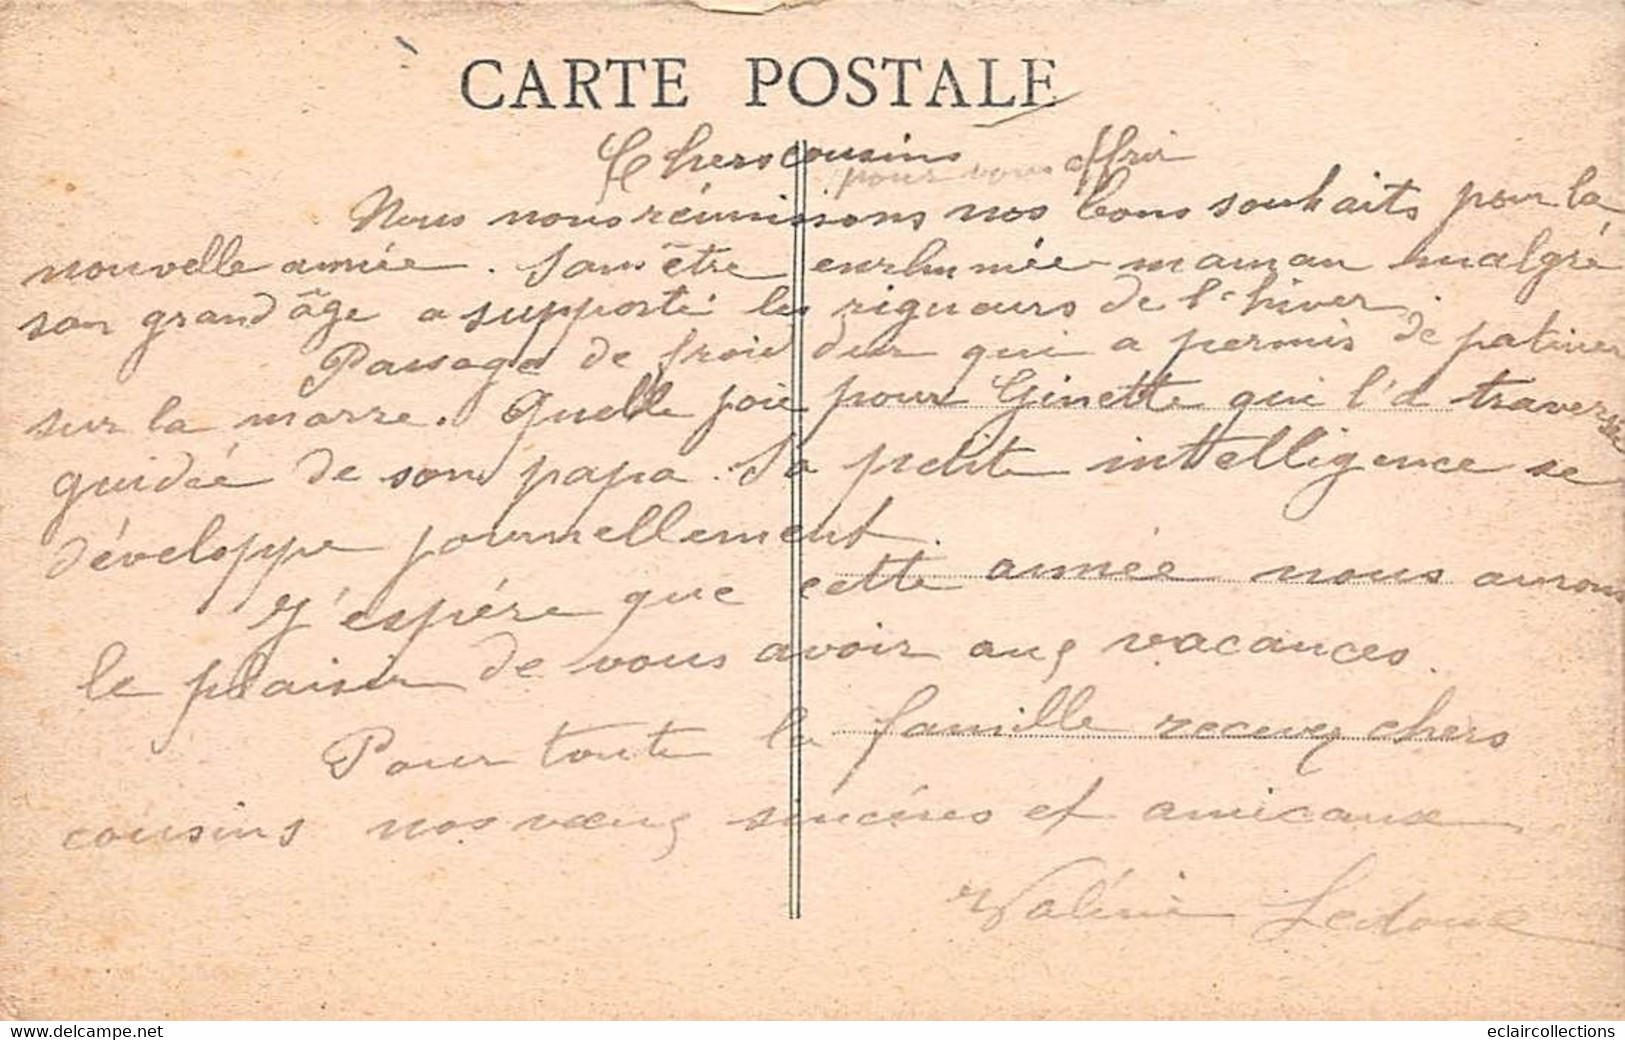 CARTE POSTALE
Chers cousins
pour vous offrir
Nous nous réunissons nos bons souhaits pour la
nouvelle année. Sans être enrhumée maman malgré
son grand âge a supporté les rigueurs de l'hiver.
Passage de froid dur qui a permis de patiner
sur la marre. Quelle joie pour Ginette qui l'a traversée
guidée de son papa. Sa petite intelligence se
développe journellement.
J'espère que cette année nous aurons
le plaisir de vous avoir aux vacances.
Pour toute la famille recevez chers
cousins nos vœux sincères et amicaux
Valérie Ledoux
eclaircollections
www.delcampe.net